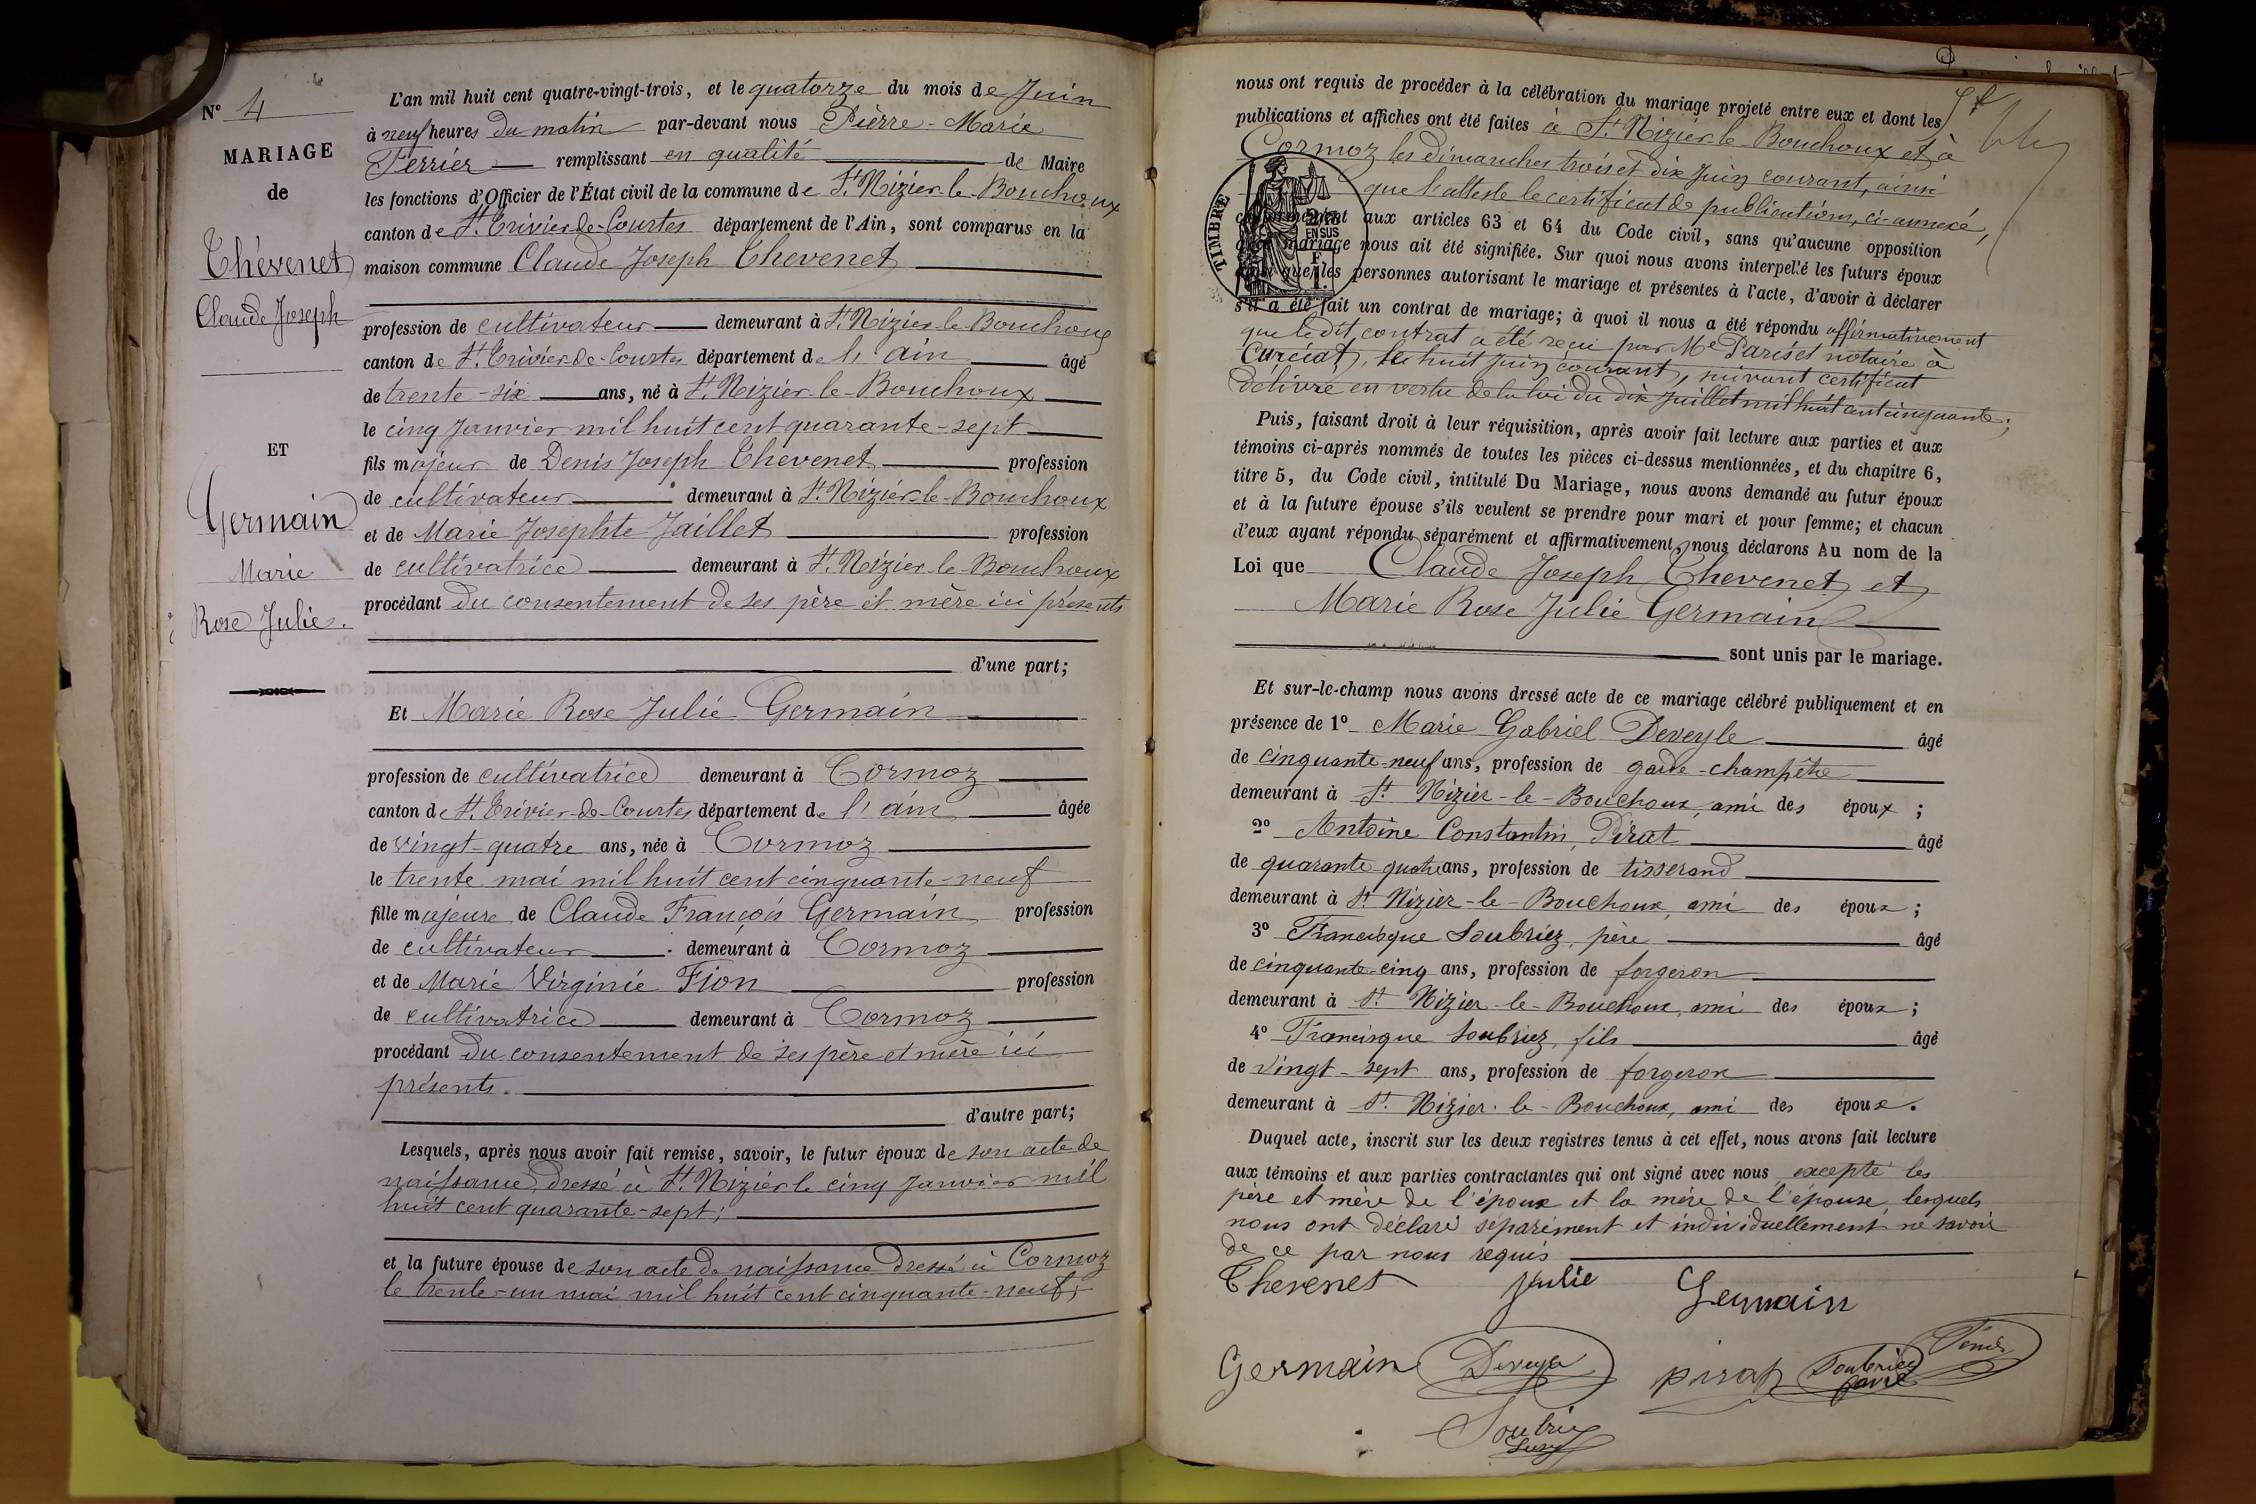 N° 4
MARIAGE
de
Thévenet
Claude Joseph
ET
Germain
Marie
Rose Julie.
L'an mil huit cent quatre-vingt-trois, et le quatorze du mois de Juin
à neuf heures du matin par-devant nous Pierre-Marie
Ferrier remplissant en qualité de Maire
les fonctions d'Officier de l'État civil de la commune de St. Nizier-le-Bouchoux
canton de St. Trivier-de-Courtes département de l'Ain, sont comparus en la
maison commune Claude Joseph Thevenet
profession de cultivateur demeurant à St. Nizier-le-Bouchoux
canton de St. Trivier-de-Courtes département de l'ain âgé
de trente-six ans, né à St. Nizier-le-Bouchoux
le cinq Janvier mil huit cent quarante-sept
fils majeur de Denis Joseph Thevenet profession
de cultivateur demeurant à St. Nizier-le-Bouchoux
et de Marie Josephte Jaillet profession
de cultivatrice demeurant à St. Nizier-le-Bouchoux
procédant du consentement de ses père et mère ici présents
d'une part;
Et Marie Rose Julie Germain
profession de cultivatrice demeurant à Cormoz
canton de St. Trivier-de-Courtes département de l'ain âgée
de vingt-quatre ans, née à Cormoz
le trente mai mil huit cent cinquante-neuf
fille majeure de Claude François Germain profession
de cultivateur demeurant à Cormoz
et de Marie Virginie Fion profession
de cultivatrice demeurant à Cormoz
procédant du consentement de ses père et mère ici
présents.
d'autre part;
Lesquels, après nous avoir fait remise, savoir, le futur époux de son acte de
naissance dressé à St. Nizier le cinq Janvier mil
huit cent quarante-sept;
et la future épouse de son acte de naissance dressé à Cormoz
le trente-un mai mil huit cent cinquante-neuf;
nous ont requis de procéder à la célébration du mariage projeté entre eux et dont les
publications et affiches ont été faites à St. Nizier-le-Bouchoux et à
Cormoz les dimanches trois et dix Juin courant, ainsi
que l'atteste le certificat de publications, ci-annexé,
conformément aux articles 63 et 64 du Code civil, sans qu'aucune opposition
audit mariage nous ait été signifiée. Sur quoi nous avons interpellé les futurs époux
ainsi que les personnes autorisant le mariage et présentes à l'acte, d'avoir à déclarer
s'il a été fait un contrat de mariage; à quoi il nous a été répondu affirmativement
que le dit contrat a été reçu par Me Pariset notaire à
Curciat, le huit Juin courant, suivant certificat
délivré en vertu de la loi du dix Juillet mil huit cent cinquante;
TIMBRE
2/10
EN SUS
F
1.
Puis, faisant droit à leur réquisition, après avoir fait lecture aux parties et aux
témoins ci-après nommés de toutes les pièces ci-dessus mentionnées, et du chapitre 6,
titre 5, du Code civil, intitulé Du Mariage, nous avons demandé au futur époux
et à la future épouse s'ils veulent se prendre pour mari et pour femme; et chacun
d'eux ayant répondu séparément et affirmativement, nous déclarons Au nom de la
Loi que Claude Joseph Thevenet et
Marie Rose Julie Germain
sont unis par le mariage.
Et sur-le-champ nous avons dressé acte de ce mariage célébré publiquement et en
présence de 1° Marie Gabriel Deveyle âgé
de cinquante-neuf ans, profession de garde-champêtre
demeurant à St Nizier-le-Bouchoux, ami des époux ;
2° Antoine Constantin, Pirat âgé
de quarante quatre ans, profession de tisserand
demeurant à St Nizier-le-Bouchoux, ami des époux ;
3° Francisque Soubriez, père âgé
de cinquante-cinq ans, profession de forgeron
demeurant à St. Nizier-le-Bouchoux, ami des époux ;
4° Francisque Soubriez, fils âgé
de vingt-sept ans, profession de forgeron
demeurant à St. Nizier-le-Bouchoux, ami des époux.
Duquel acte, inscrit sur les deux registres tenus à cet effet, nous avons fait lecture
aux témoins et aux parties contractantes qui ont signé avec nous excepté les
père et mère de l'époux et la mère de l'épouse, lesquels
nous ont déclaré séparément et individuellement ne savoir
de ce par nous requis
Thevenet Julie Germain
Germain Deveyle Pirat Soubriez
Soubriez